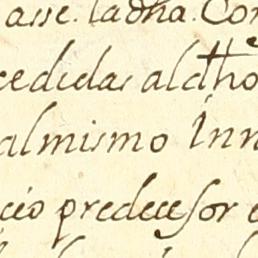 asse. ladha. Con
cedidas aldho
almismo Inn
cio predecesor e